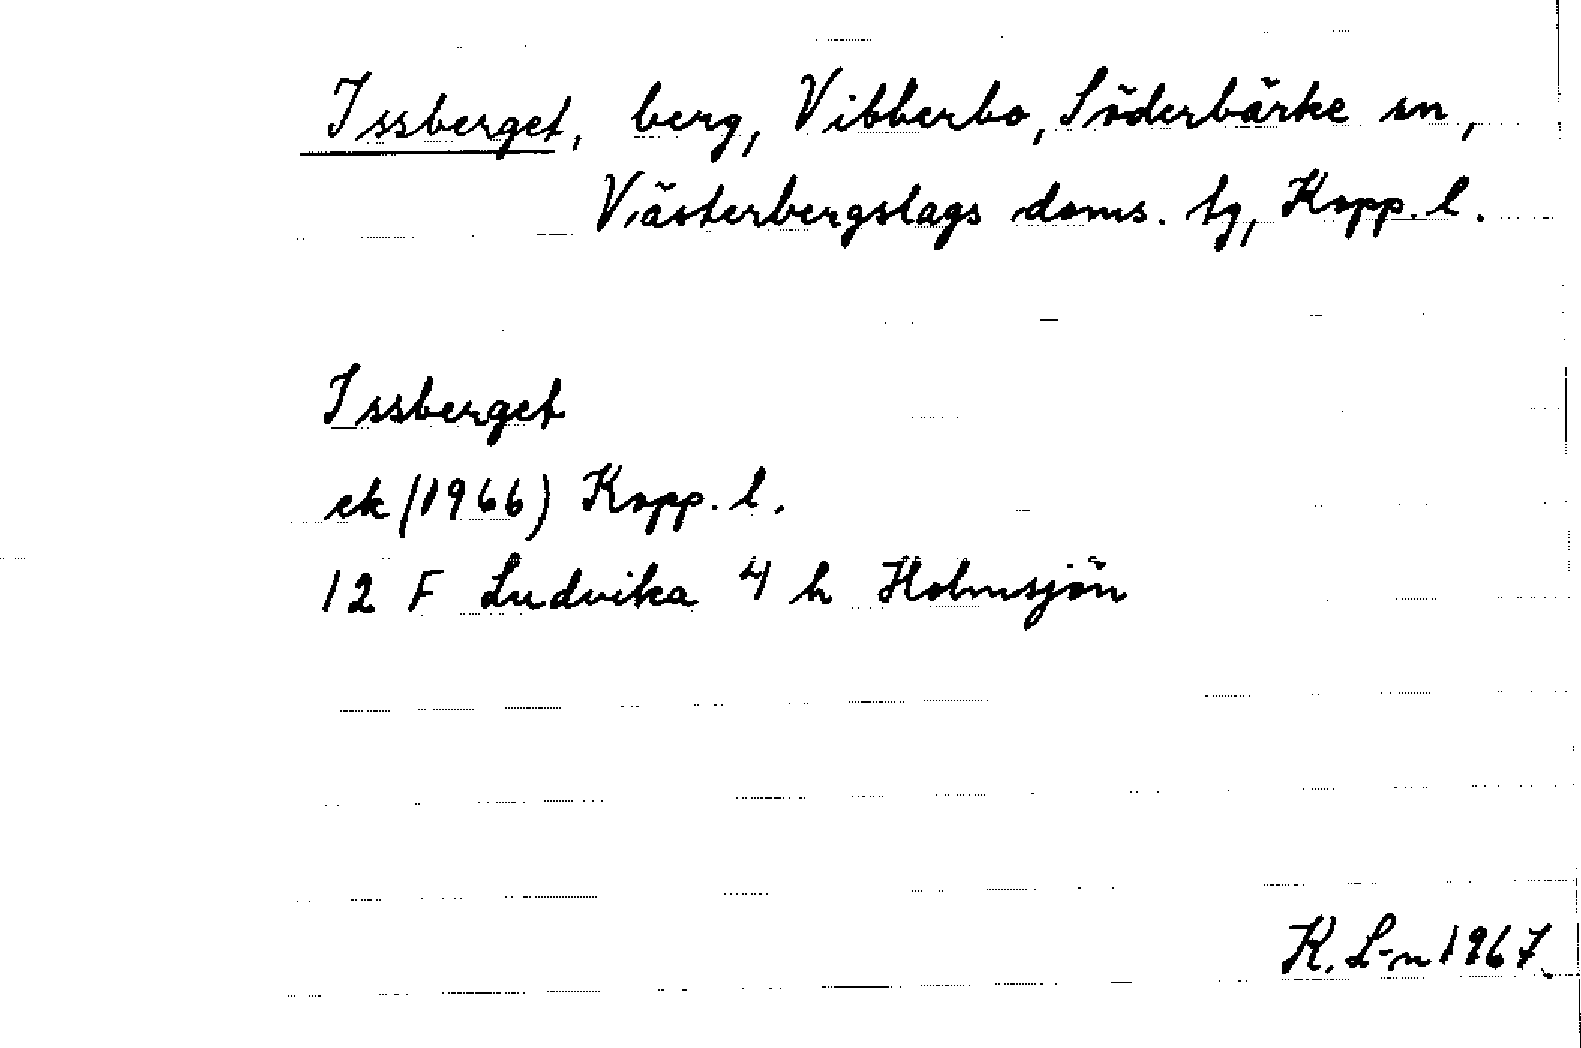 Issberget, berg, Vibberbo, Söderbärke sn,
Västerbergslags doms. tg, Kopp. l.
Issberget
ek (1966) Kopp. l.
12 F Ludvika 4 h Holmsjön
K. L-n 1967